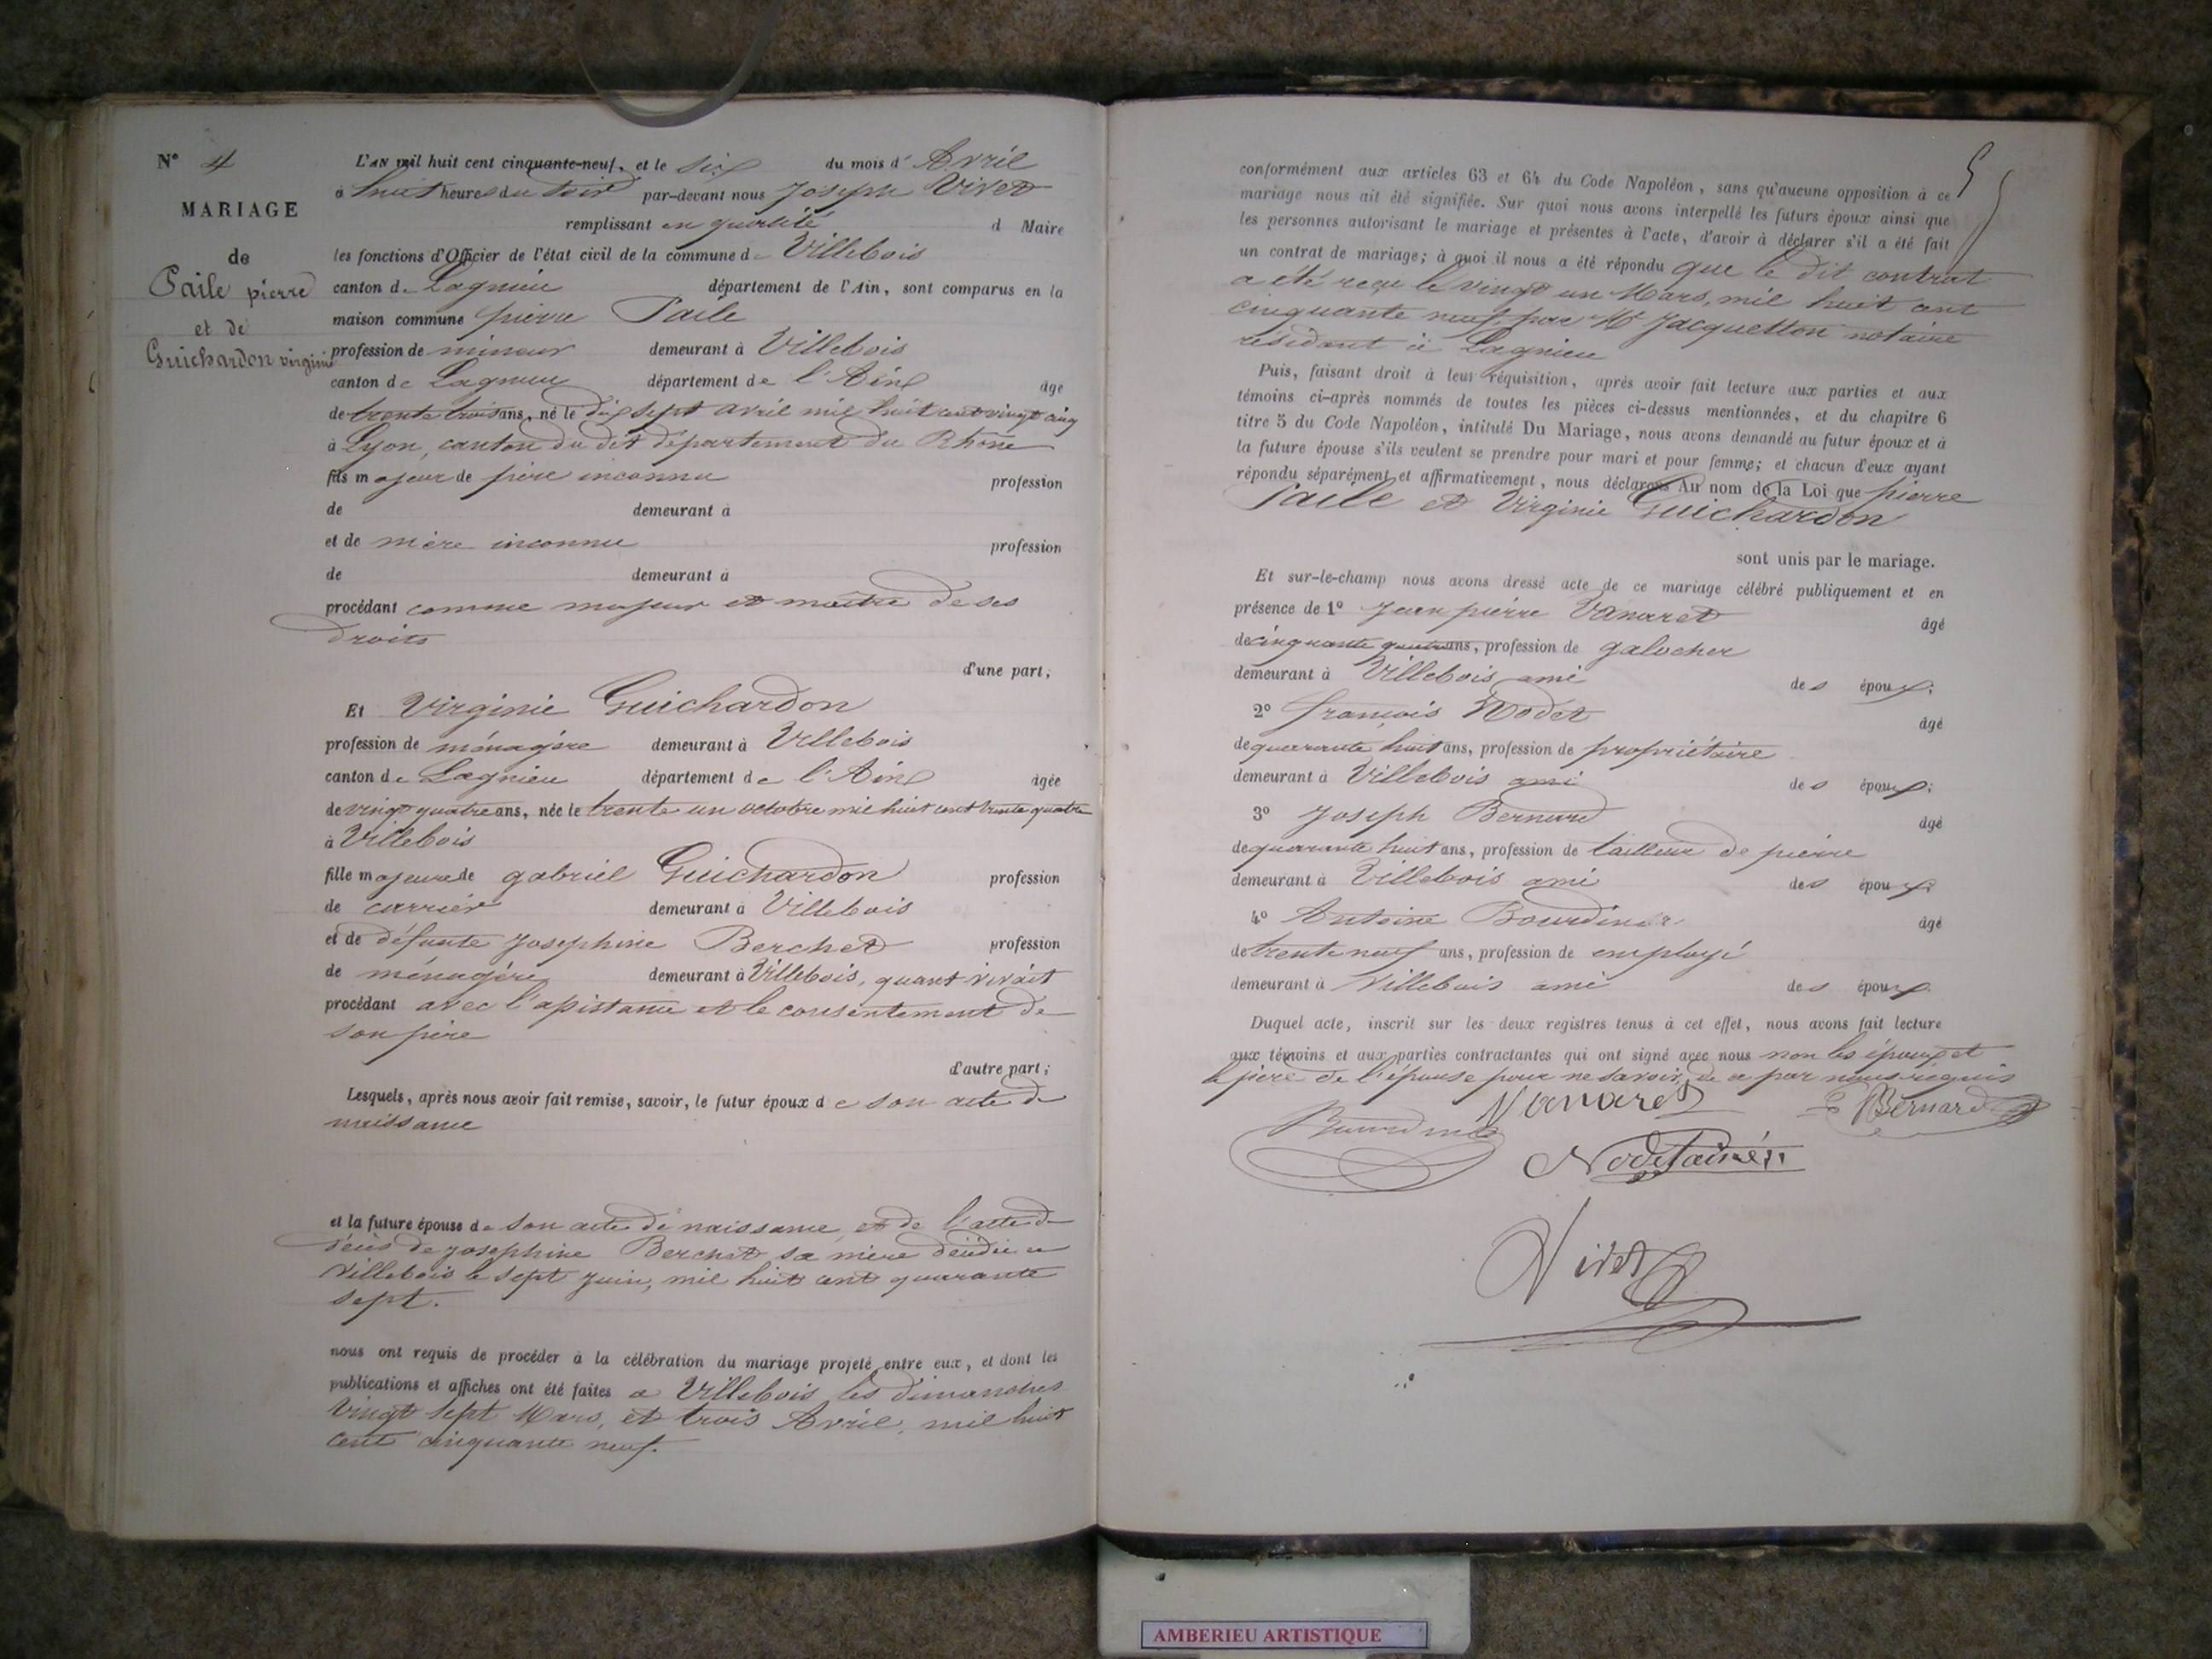 N° 4
MARIAGE
de
Paile pierre
et de
Guichardon virginie
L'AN mil huit cent cinquante-neuf, et le six du mois d' Avril
à huit heures du soir par-devant nous Joseph Vivet
remplissant en qualité d Maire
les fonctions d'Officier de l'état civil de la commune de Villebois
canton de Lagnieu département de l'Ain, sont comparus en la
maison commune pierre Paile
profession de mineur demeurant à Villebois
canton de Lagnieu département de l'Ain âgé
de trente trois ans, né le dix sept avril mil huit cent vingt cinq
à Lyon, canton du dit département du Rhône
fils majeur de père inconnu profession
de demeurant à
et de mère inconnue profession
de demeurant à
procédant comme majeur et maître de ses
droits
d'une part;
Et Virginie Guichardon
profession de ménagère demeurant à Villebois
canton de Lagnieu département de l'Ain âgée
de vingt quatre ans, née le trente un octobre mil huit cent trente quatre
à Villebois
fille majeure de gabriel Guichardon profession
de carrier demeurant à Villebois
et de défunte Josephine Berchet profession
de ménagère demeurant à Villebois, quant vivait
procédant avec l'assistance et le consentement de
son père
d'autre part;
Lesquels, après nous avoir fait remise, savoir, le futur époux de son acte de
naissance
et la future épouse de son acte de naissance, et de l'acte de
décès de Josephine Berchet sa mère décédée a
Villebois le sept juin, mil huit cent quarante
sept.
nous ont requis de procéder à la célébration du mariage projeté entre eux, et dont les
publications et affiches ont été faites a Villebois les dimanches
vingt sept Mars, et trois Avril, mil huit
cent cinquante neuf.
5
conformément aux articles 63 et 64 du Code Napoléon, sans qu'aucune opposition à ce
mariage nous ait été signifiée. Sur quoi nous avons interpellé les futurs époux ainsi que
les personnes autorisant le mariage et présentes à l'acte, d'avoir à déclarer s'il a été fait
un contrat de mariage; à quoi il nous a été répondu que le dit contrat
a été reçu le vingt un Mars, mil huit cent
cinquante neuf, par Me Jacquetton notaire
residant à Lagnieu
Puis, faisant droit à leur réquisition, après avoir fait lecture aux parties et aux
témoins ci-après nommés de toutes les pièces ci-dessus mentionnées, et du chapitre 6
titre 5 du Code Napoléon, intitulé Du Mariage, nous avons demandé au futur époux et à
la future épouse s'ils veulent se prendre pour mari et pour femme; et chacun d'eux ayant
répondu séparément et affirmativement, nous déclarons Au nom de la Loi que pierre
Paile et Virginie Guichardon
sont unis par le mariage.
Et sur-le-champ nous avons dressé acte de ce mariage célébré publiquement et en
présence de 1° Jean pierre Vanaret âgé
de cinquante ans, profession de galocher
demeurant à Villebois ami des époux;
2° françois Nodet âgé
de quarante huit ans, profession de propriétaire
demeurant à Villebois ami des époux;
3° Joseph Bernard âgé
de quarante huit ans, profession de tailleur de pierre
demeurant à Villebois ami des époux;
4° Antoine âgé
de trente neuf ans, profession de employé
demeurant à Villebois ami des époux.
Duquel acte, inscrit sur les deux registres tenus à cet effet, nous avons fait lecture
aux témoins et aux parties contractantes qui ont signé avec nous non les époux et
le père de l'épouse pour ne savoir, de ce par nous requis
Vanaret Bernard
Nodet ainé
Vivet
AMBERIEU ARTISTIQUE